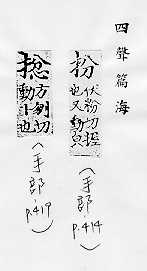 四聲篇海
扮 伏粉切握
也又動
(手部 P.414)
方列切
動也
(手部 P.419)